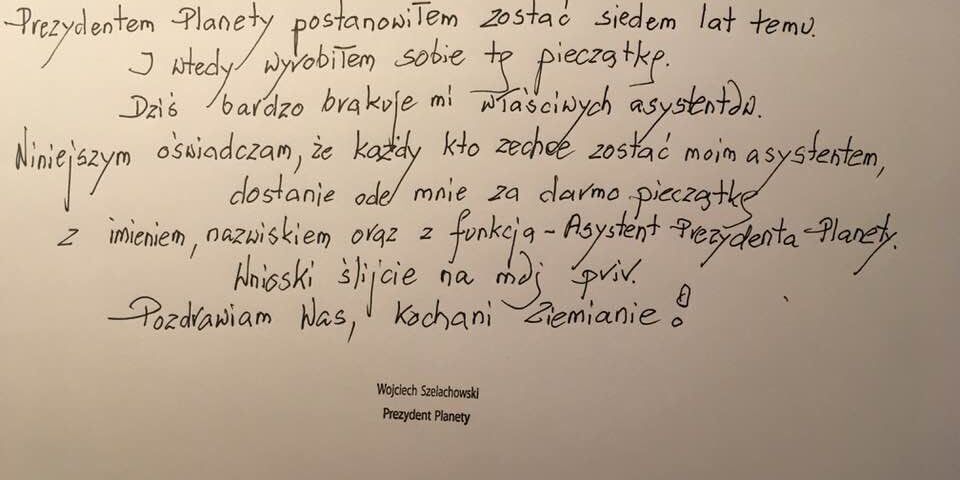 Prezydentem Planety postanowiłem zostać siedem lat temu.
I wtedy wyrobiłem sobie tę pieczątkę.
Dziś bardzo brakuje mi właściwych asystentów.
Niniejszym oświadczam, że każdy kto zechce zostać moim asystentem,
dostanie ode mnie za darmo pieczątkę
z imieniem, nazwiskiem oraz z funkcją - Asystent Prezydenta Planety.
Wnioski ślijcie na mój priv.
Pozdrawiam Was, kochani Ziemianie!
Wojciech Szelachowski
Prezydent Planety